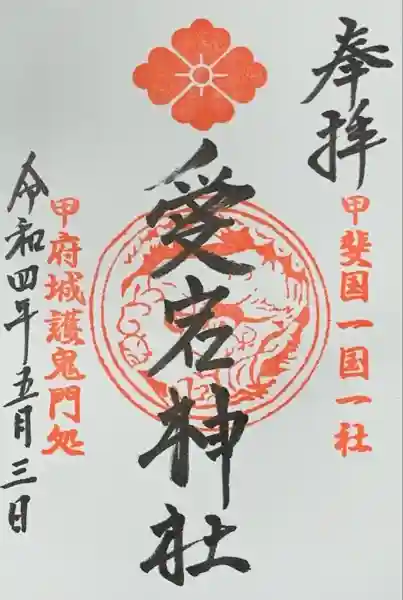 奉拝
甲斐国一国一社
愛宕神社
甲府城護鬼門処
令和四年五月三日